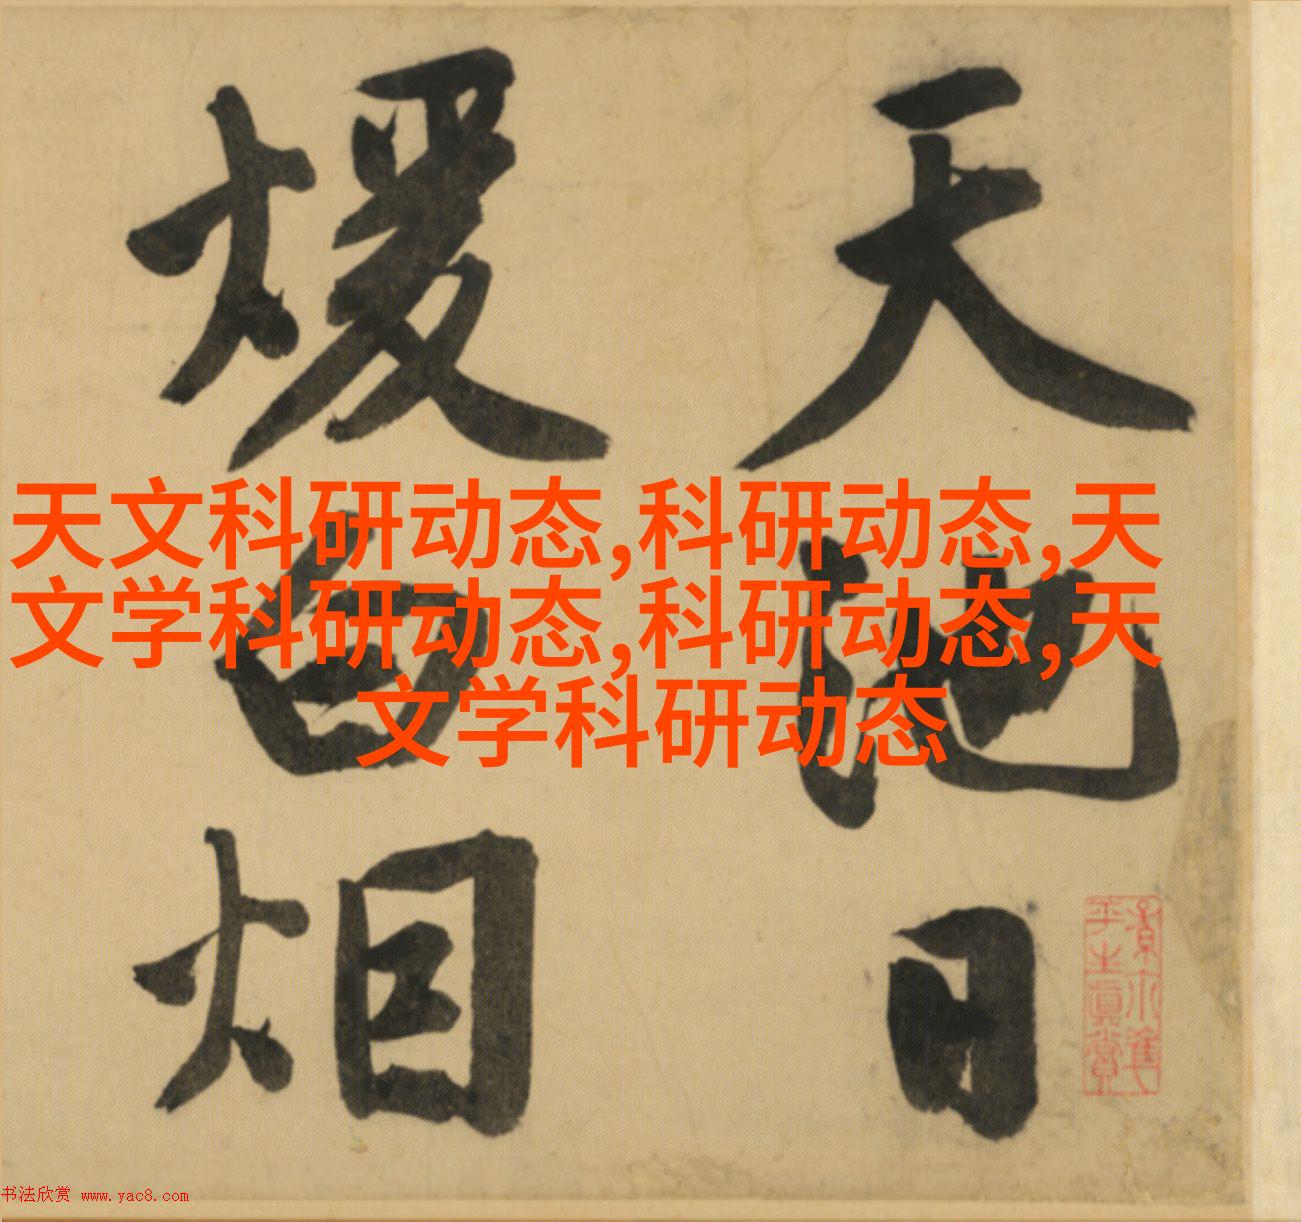 天文科研动态,科研动态,天
文学科研动态,科研动态,天
文学科研动态
天池日
煖白烟
平生真賞
书法欣赏 www.yac8.com